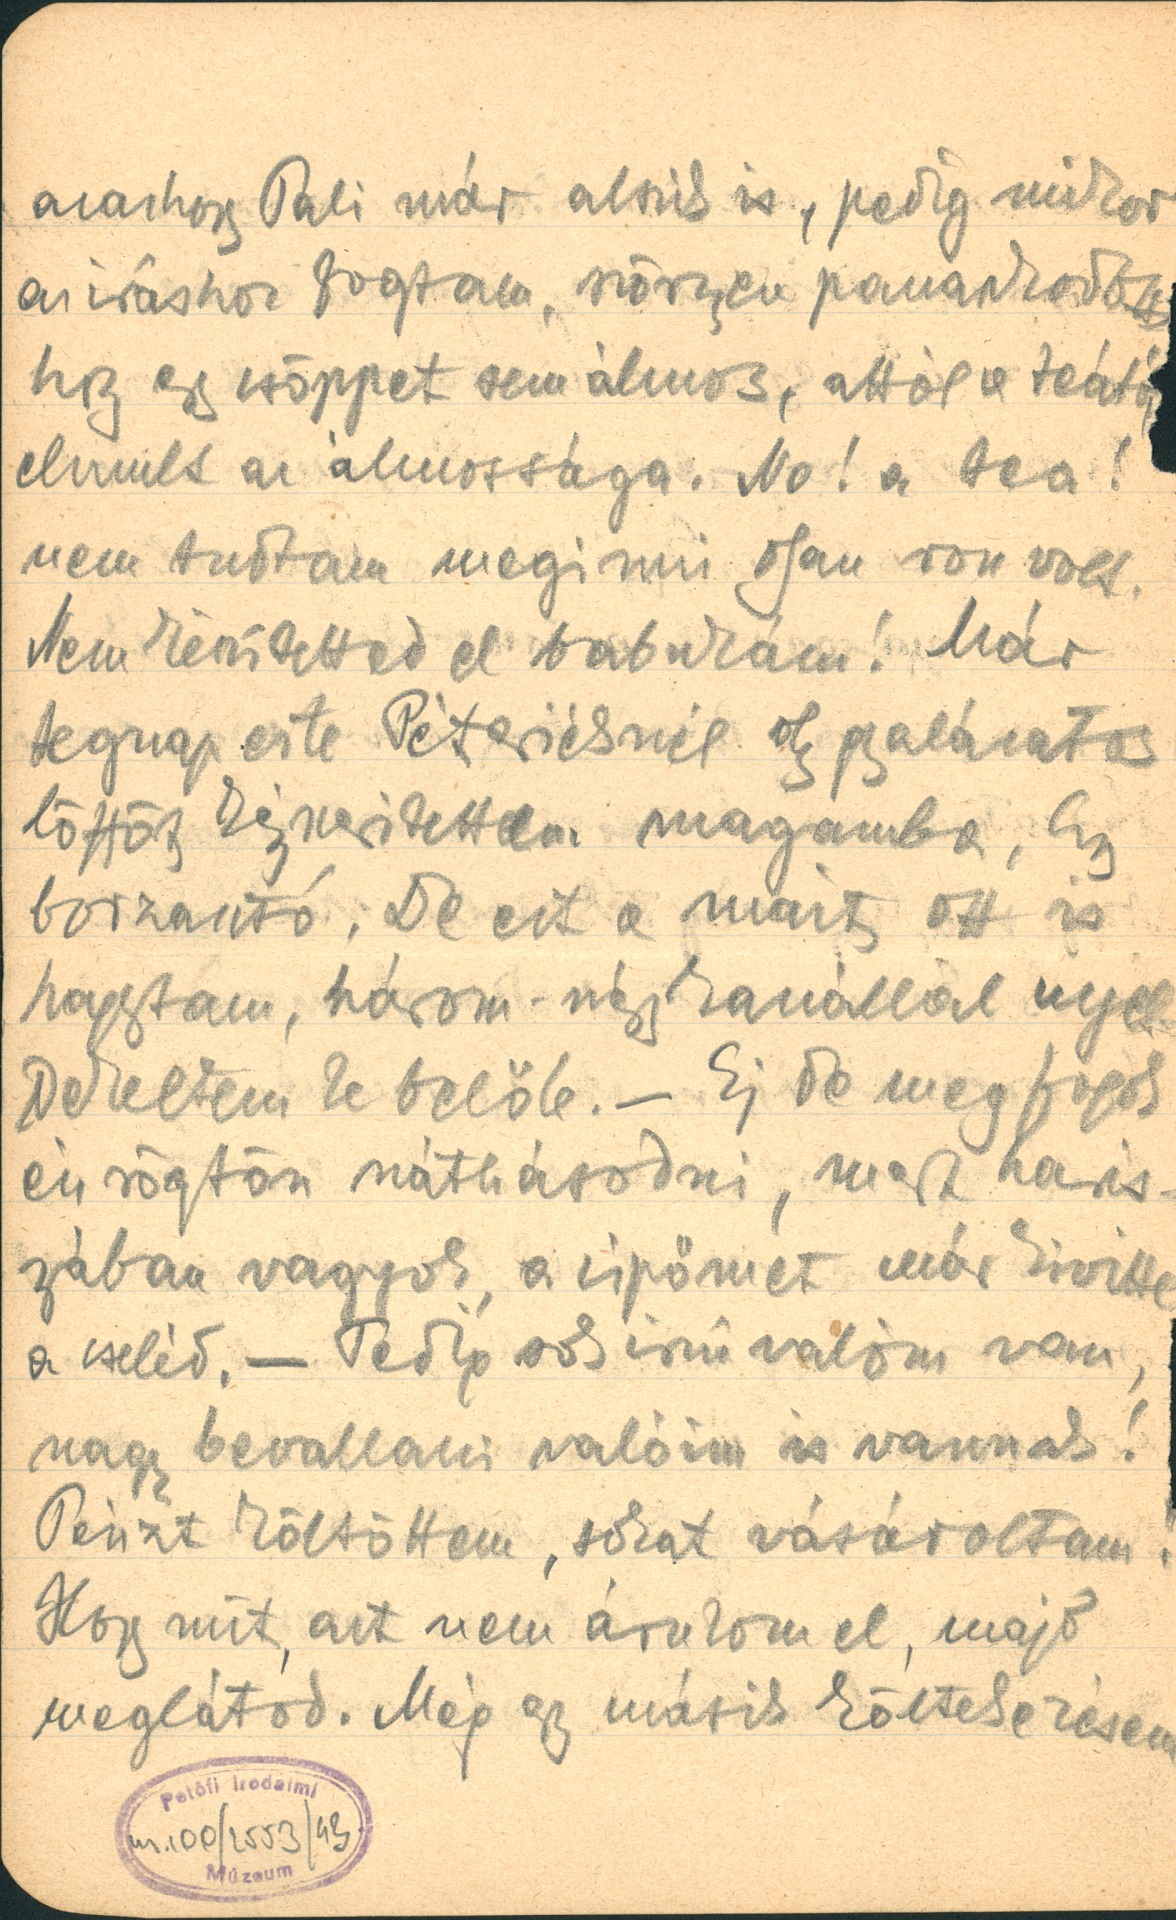 azazhogy Pali már alszik is, pedig mikor
az íráshoz fogtam, szörnyen panaszkodott
hogy egy csöppet sem álmos, attól a teától
elmult az álmossága. No! a tea!
nem tudtam meginni olyan rossz volt.
Nem készítetted el babukám! Már
tegnap este Péteriéknél egy pzalázatos
löttöt kényszerítettem magamba, Egy
borzasztó. De ezt a mait, ott is
hagytam, három-négy kanállal nyel
Dekeltem le belőle. — Ej de meg fogok
én rögtön náthásodni, mert haris-
nyában vagyok, a cipőmet már kivitte
a cseléd. — Pedig sok írni valóm van,
nagy bevallani valóim is vannak!
Pénzt költöttem, sokat vásároltam!
Hogy mit, azt nem árulom el, majd
meglátod. Még egy másik költekezésem
Petőfi Irodalmi
100/2553/43
Múzeum